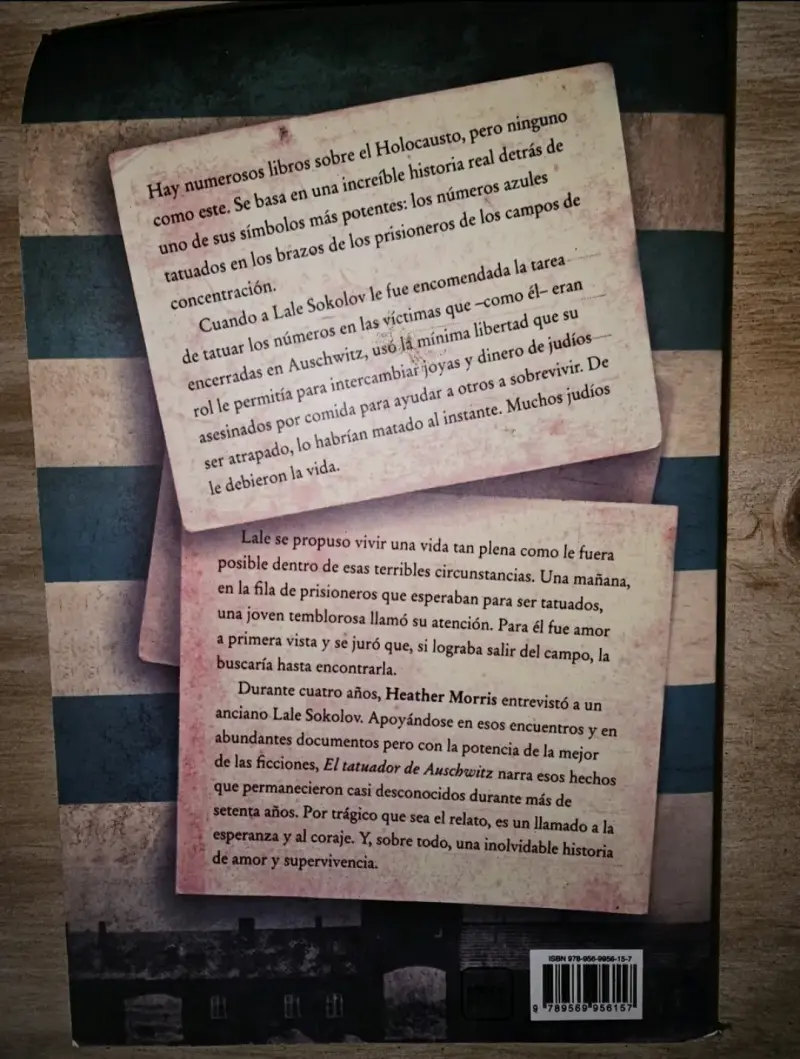 Hay numerosos libros sobre el Holocausto, pero ninguno
como este. Se basa en una increíble historia real detrás de
uno de sus símbolos más potentes: los números azules
tatuados en los brazos de los prisioneros de los campos de
concentración.
Cuando a Lale Sokolov le fue encomendada la tarea
de tatuar los números en las víctimas que –como él– eran
encerradas en Auschwitz, usó la mínima libertad que su
rol le permitía para intercambiar joyas y dinero de judíos
asesinados por comida para ayudar a otros a sobrevivir. De
ser atrapado, lo habrían matado al instante. Muchos judíos
le debieron la vida.
Lale se propuso vivir una vida tan plena como le fuera
posible dentro de esas terribles circunstancias. Una mañana,
en la fila de prisioneros que esperaban para ser tatuados,
una joven temblorosa llamó su atención. Para él fue amor
a primera vista y se juró que, si lograba salir del campo, la
buscaría hasta encontrarla.
Durante cuatro años, Heather Morris entrevistó a un
anciano Lale Sokolov. Apoyándose en esos encuentros y en
abundantes documentos pero con la potencia de la mejor
de las ficciones, El tatuador de Auschwitz narra esos hechos
que permanecieron casi desconocidos durante más de
setenta años. Por trágico que sea el relato, es un llamado a la
esperanza y al coraje. Y, sobre todo, una inolvidable historia
de amor y supervivencia.
ISBN 978-956-9956-15-7
9 789569 956157